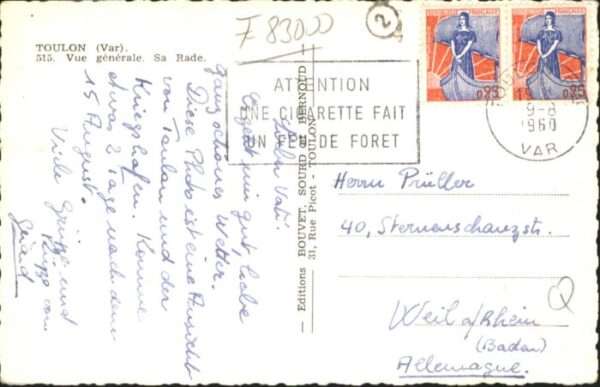 F 83000
2
TOULON (Var).
515. Vue générale. Sa Rade.
ATTENTION
UNE CIGARETTE FAIT
UN FEU DE FORET
RÉPUBLIQUE FRANÇAISE
0,25
0,25
9-8
1960
VAR
Lieber Vati!
Es geht mir gut, habe
ganz schönes Wetter.
Diese Photo ist eine Ansicht
von Toulon und der
Kriegshafen. Komme
etwas 2 Tage nach dem
15 August.
Viele Grüße und
Küsse von
Gérard
— Editions BOUVET, SOURD et BERNOUD
31, Rue Picot - TOULON
Herrn Prüller
40, Sternenschanzstr.
Weil a/Rhein
(Baden)
Allemagne.